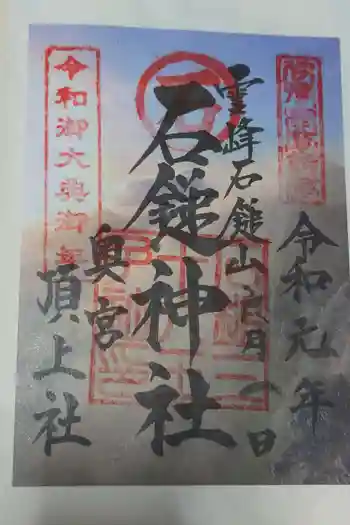 霊峰石鎚山
令和元年
八月一日
石鎚神社
奥宮
頂上社
令和御大典御